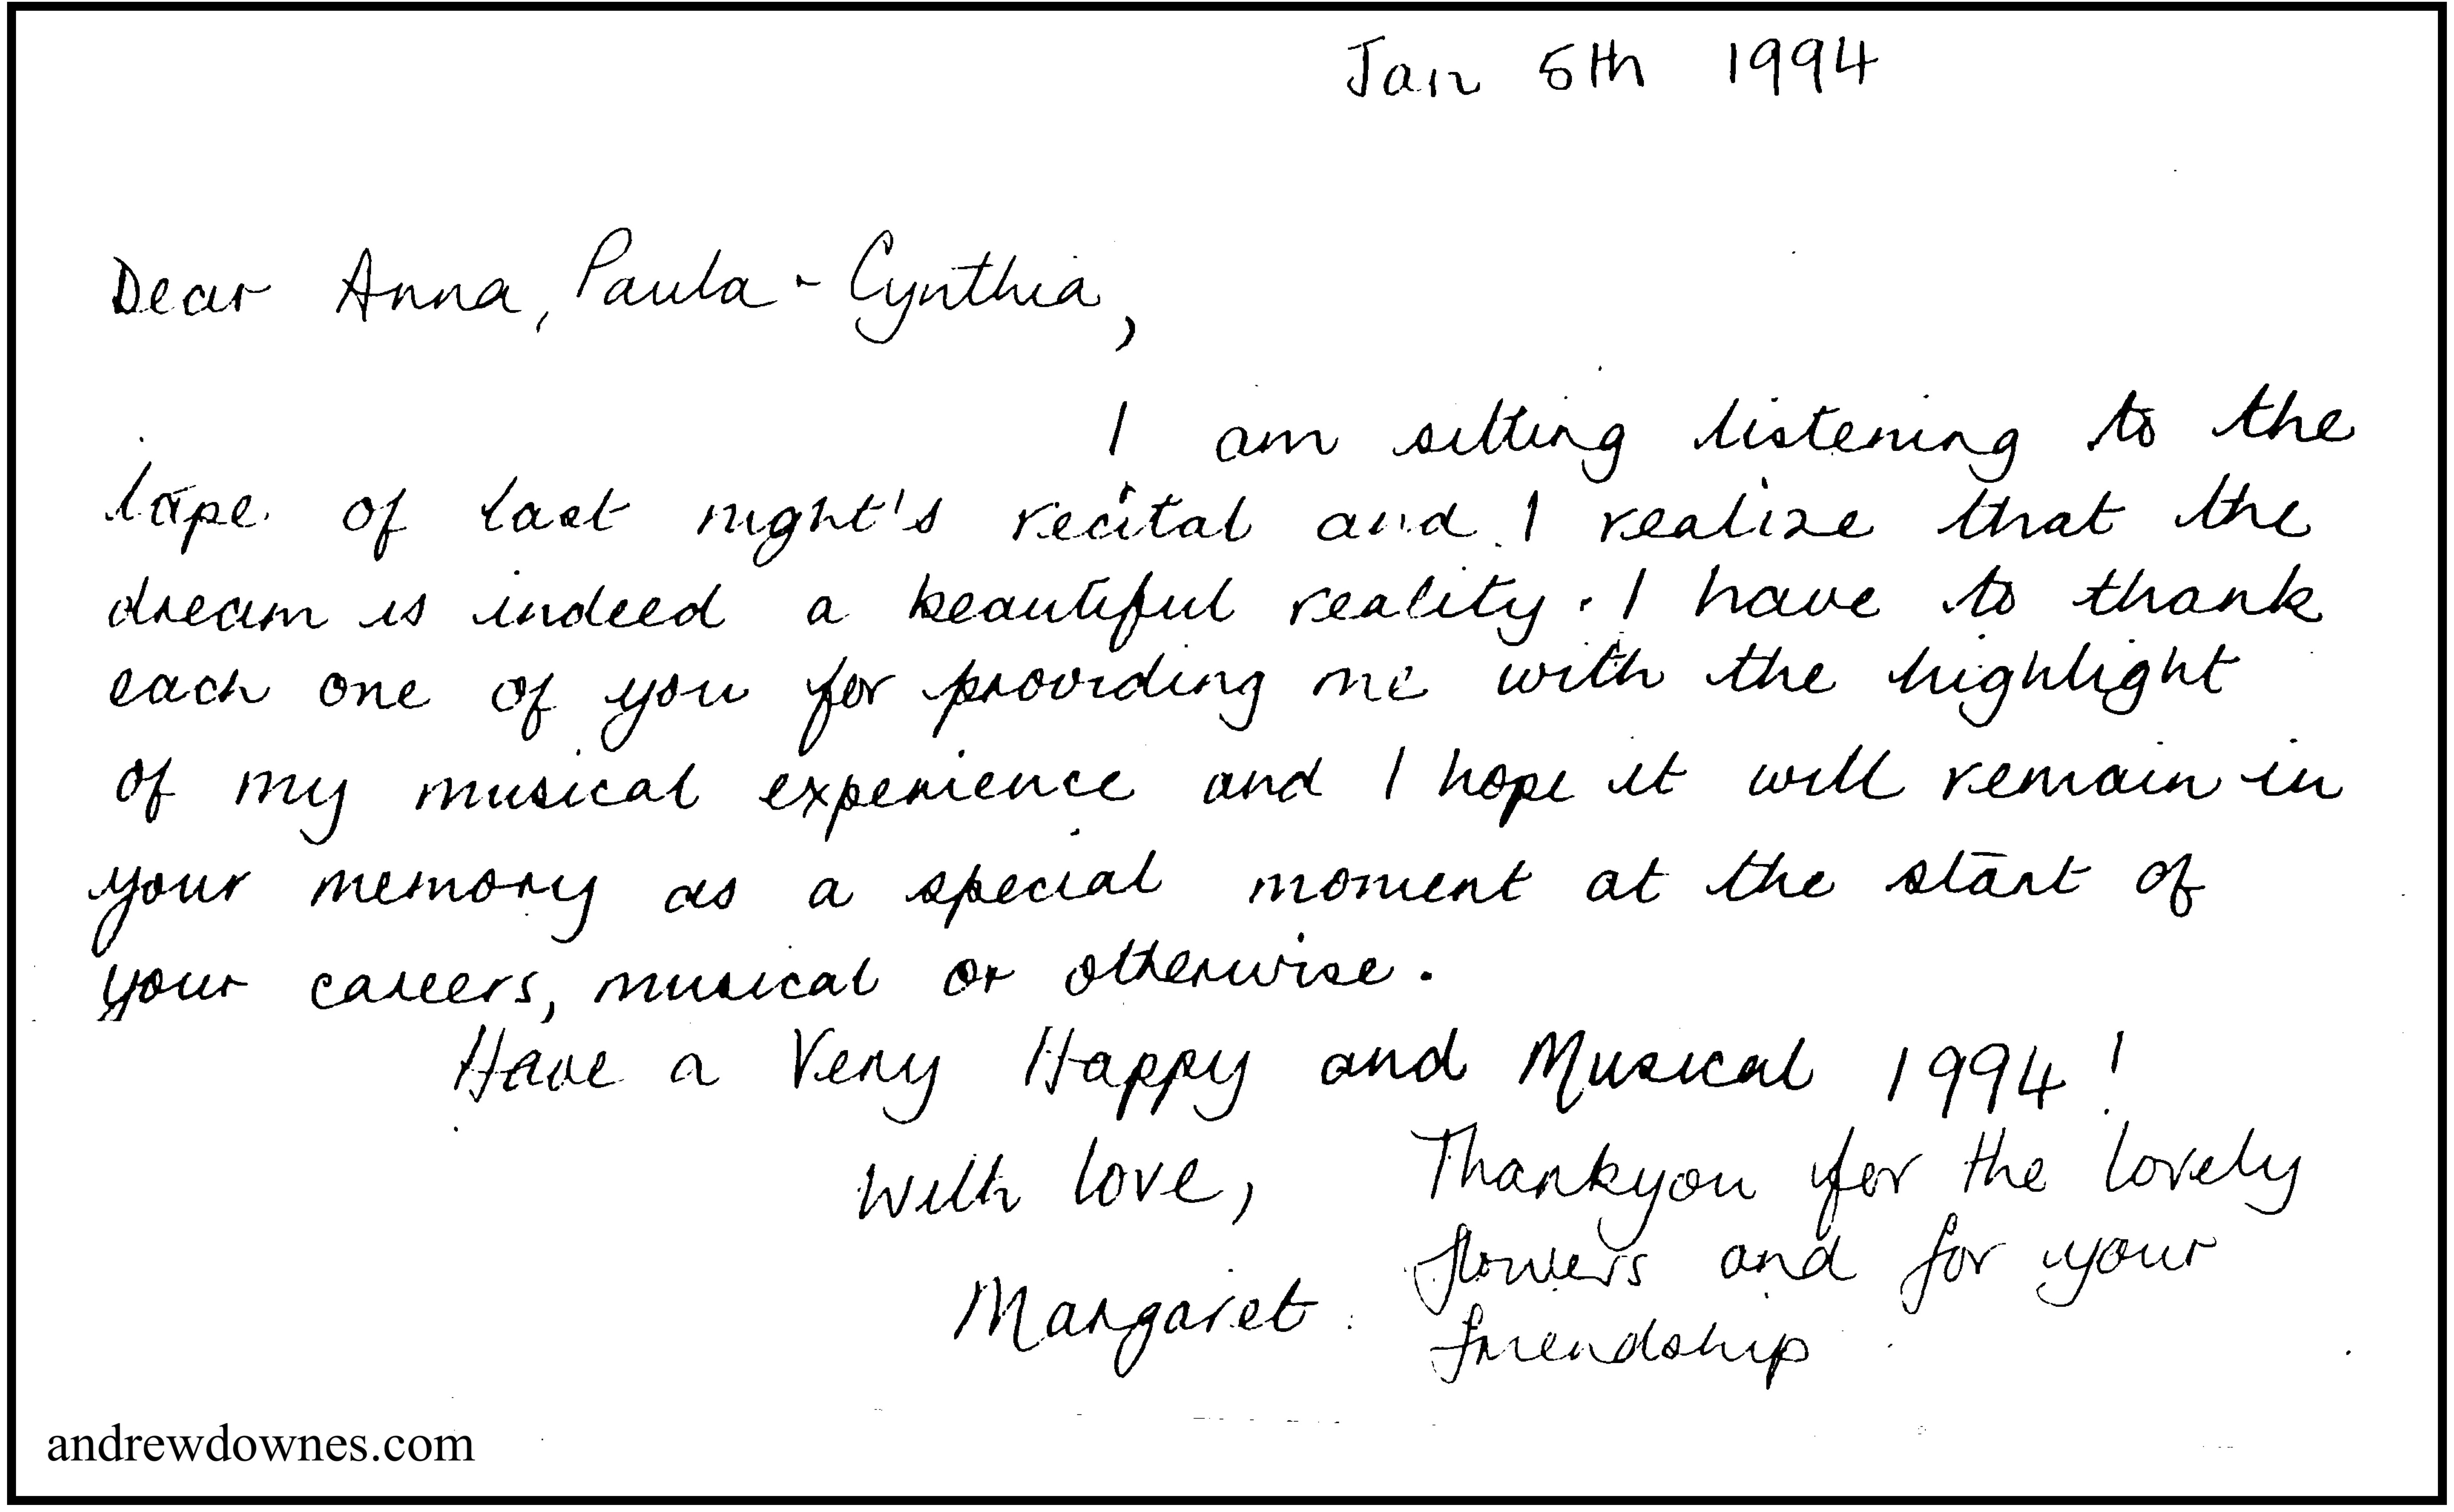 Jan 5th 1994
Dear Anna, Paula - Cynthia,
I am sitting listening to the
tape of last night's recital and I realise that the
dream is indeed a beautiful reality. I have to thank
each one of you for providing me with the highlight
of my musical experience and I hope it will remain in
your memory as a special moment at the start of
your careers, musical or otherwise.
Have a Very Happy and Musical 1994!
With love,
Margaret.
Thankyou for the lovely
flowers and for your
friendship.
andrewdownes.com